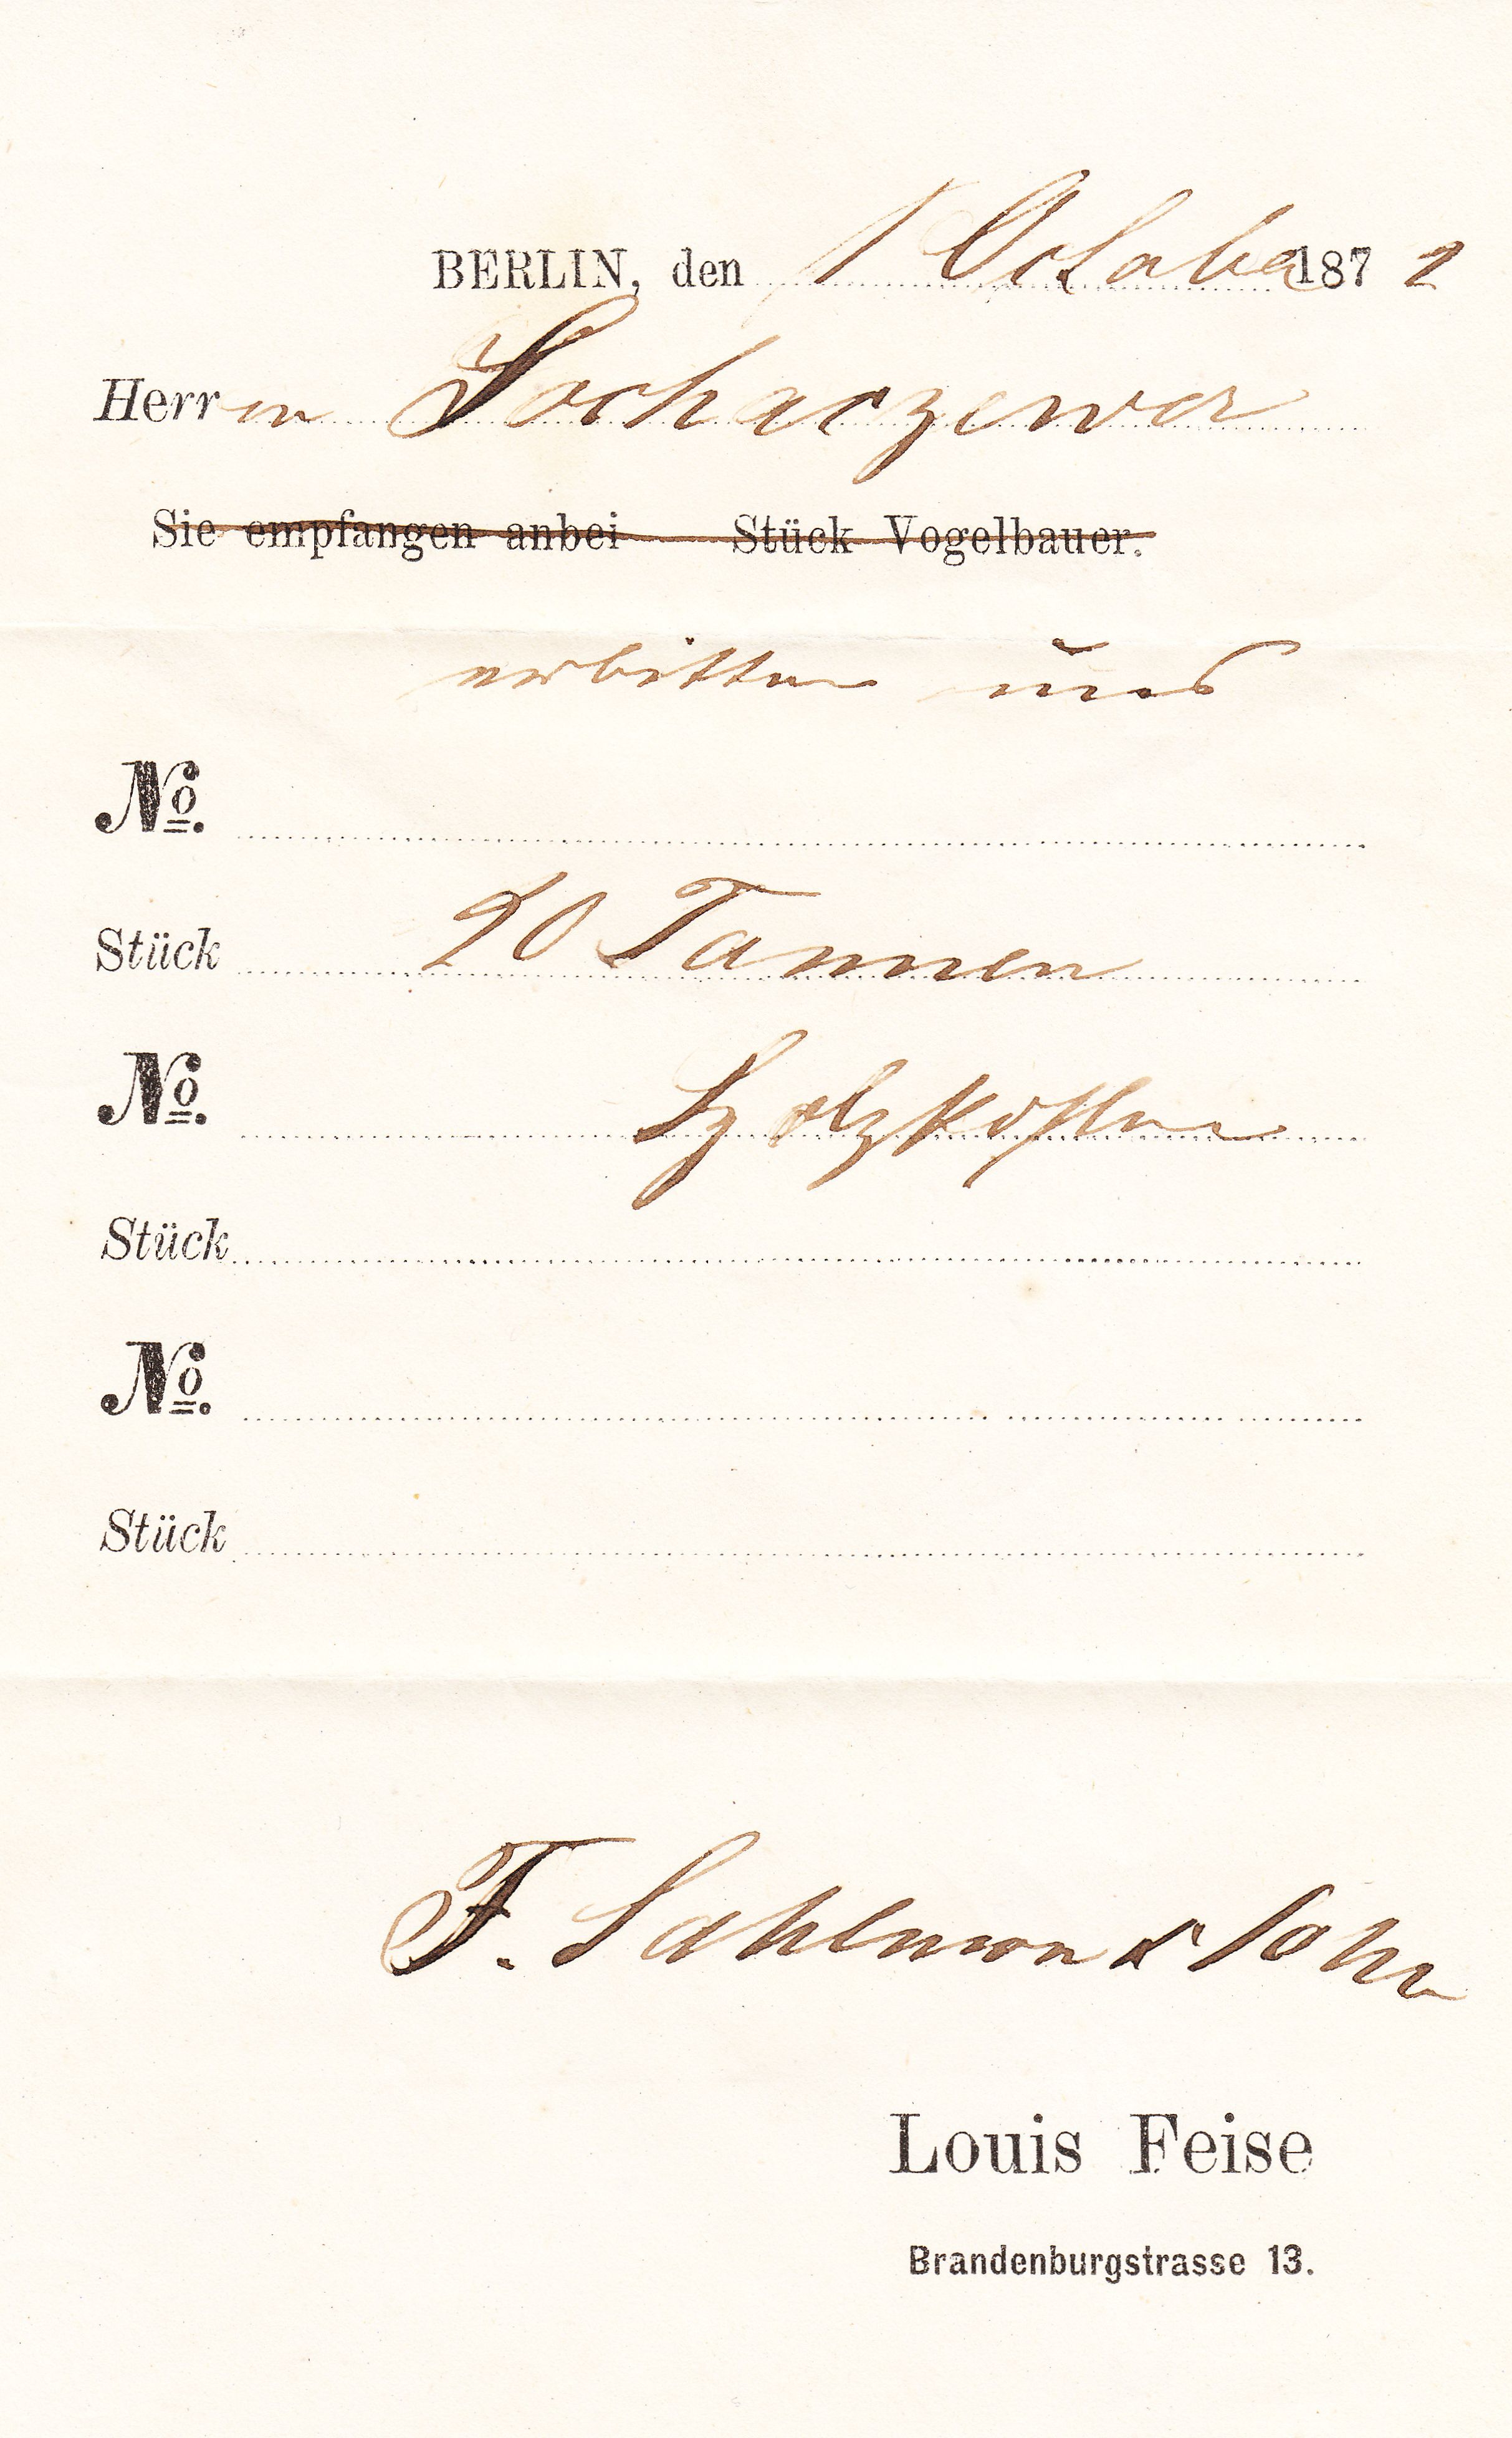 BERLIN, den 1 October 187 2
Herrn Sochaczewer
Sie empfangen anbei Stück Vogelbauer.
erbitten uns
No.
Stück 20 Tannen
No. Holzkohlen
Stück
No.
Stück
F. & Sohn
Louis Feise
Brandenburgstrasse 13.